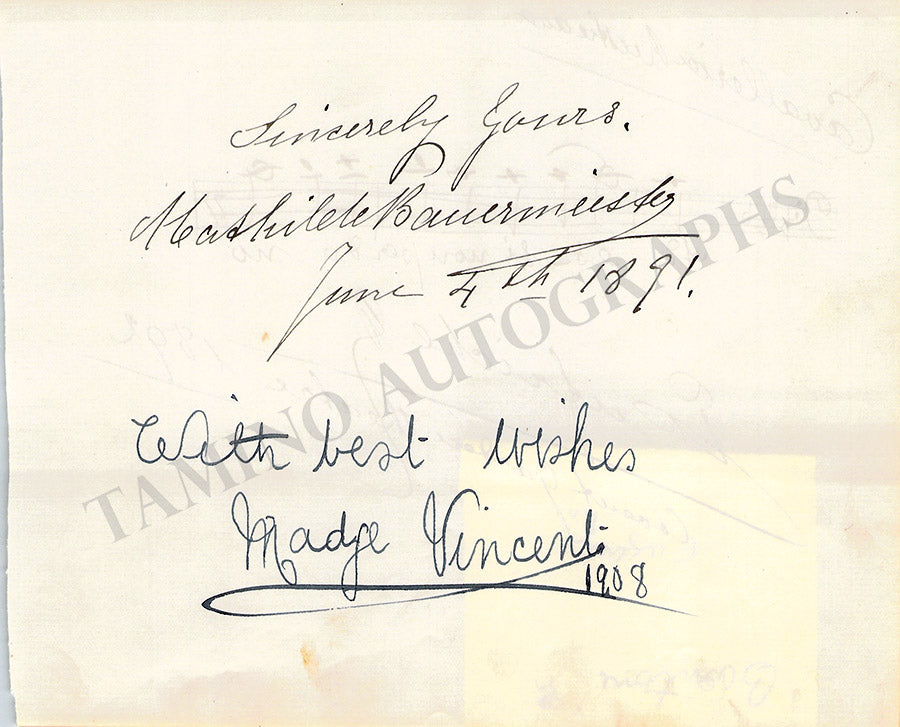 Sincerely Yours.
Mathilde Bauermeister
June 4th 1891.
With best wishes
Madge Vincent.
1908
TAMINO AUTOGRAPHS